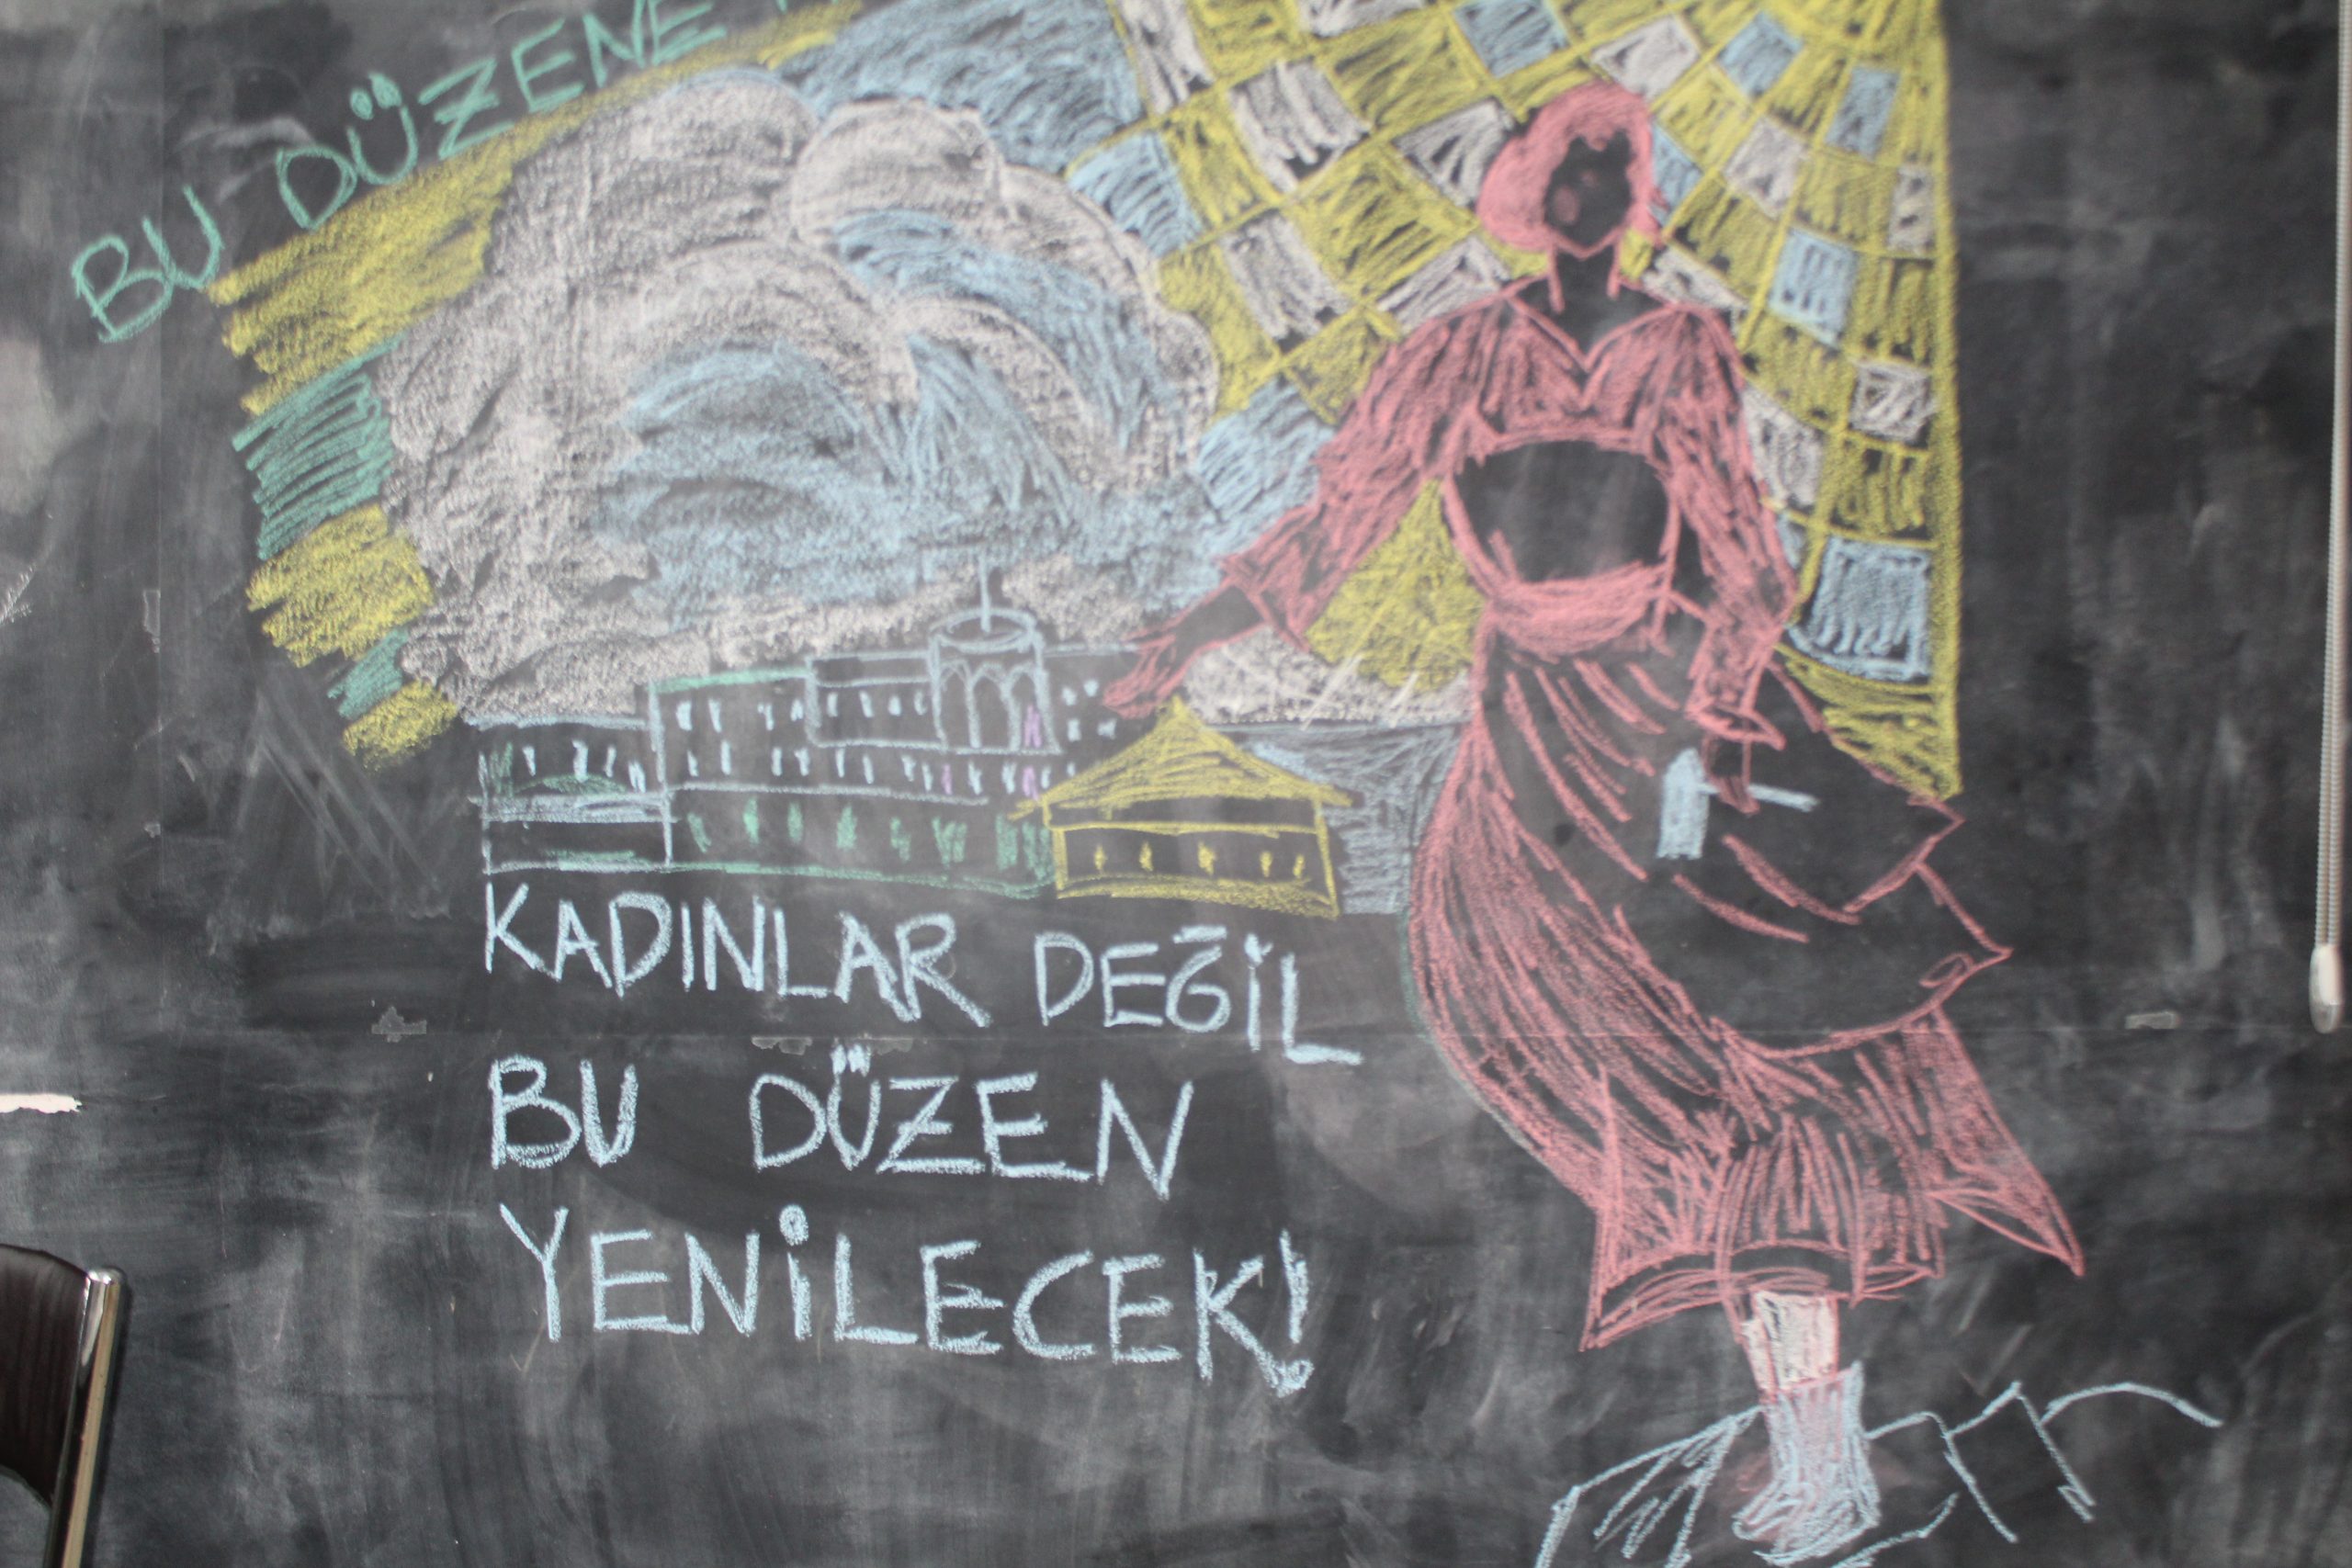 BU DÜZENE
KADINLAR DEĞİL
BU DÜZEN
YENİLECEK!